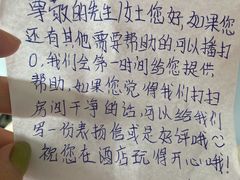 尊敬的先生/女士您好，如果您
还有其他需要帮助的可以播打
0，我们会第一时间给您提供
帮助，如果您觉得我们打扫
房间干净的话，可以给我们
写一份表扬信或是好评哦
祝您在酒店玩得开心哦！